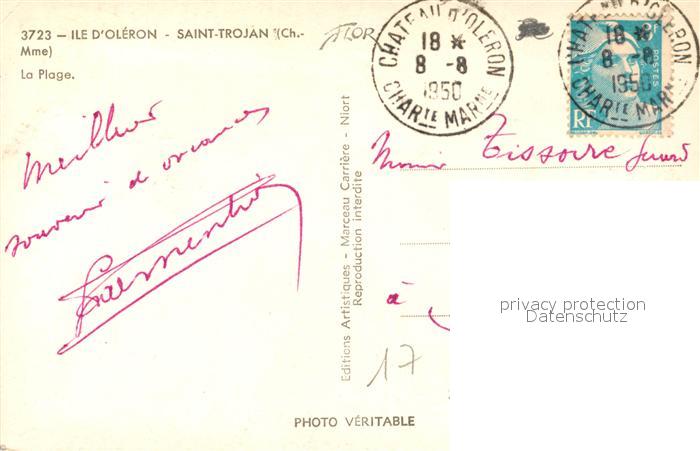 3723 — ILE D'OLÉRON - SAINT-TROJAN (Ch.-
Mme)
La Plage.
FLOR
CHATEAU D'OLERON
18 *
8 -8
1950
CHARTE MARME
CHATEAU D'OLERON
18 *
8 -8
1950
CHARTE MARME
POSTES
RF
Meilleur
souvenir de vacances
Editions Artistiques - Marceau Carrière - Niort
Reproduction interdite
Tissoire Gérard
à
privacy protection
Datenschutz
17
PHOTO VÉRITABLE